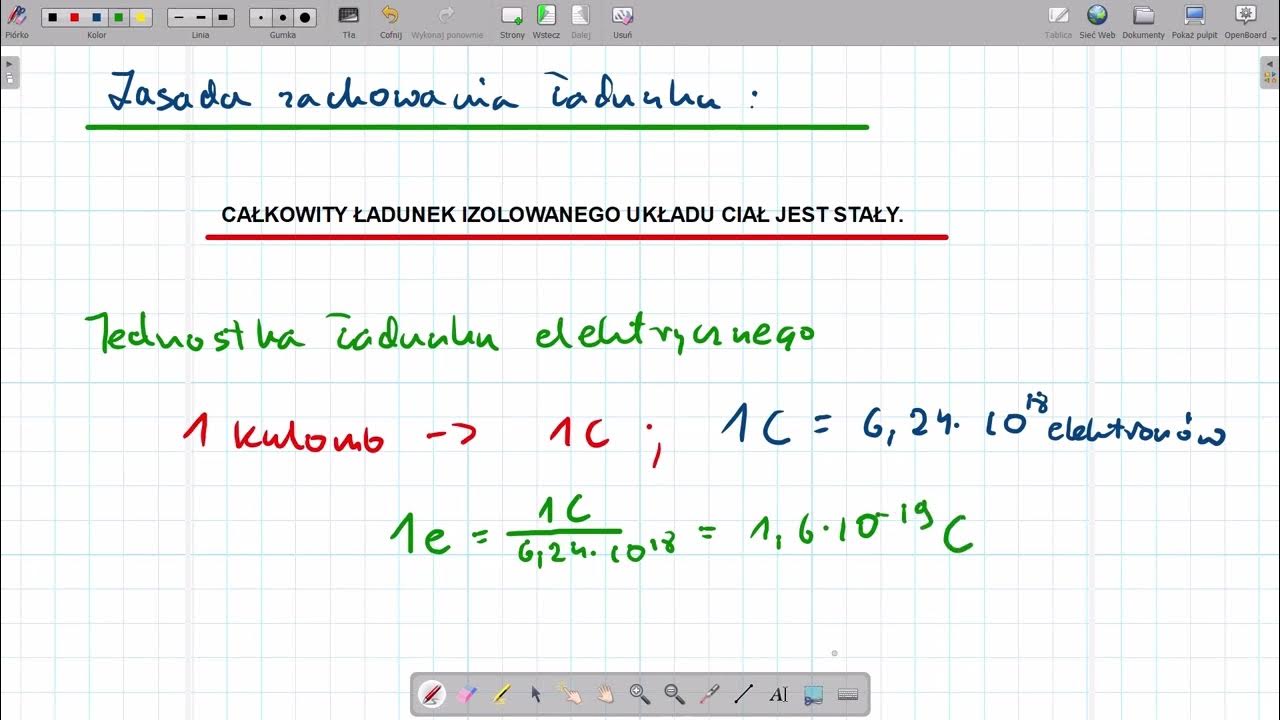 Piórko Kolor Linia Gumka Tła Cofnij Wykonaj ponownie Strony Wstecz Dalej Usuń Tablica Sieć Web Dokumenty Pokaż pulpit OpenBoard
Zasada zachowania ładunku :
CAŁKOWITY ŁADUNEK IZOLOWANEGO UKŁADU CIAŁ JEST STAŁY.
Jednostka ładunku elektrycznego
1 kulomb -> 1C ; 1C = 6,24·10^18 elektronów
1e = 1C / 6,24·10^18 = 1,6·10^-19 C
AI